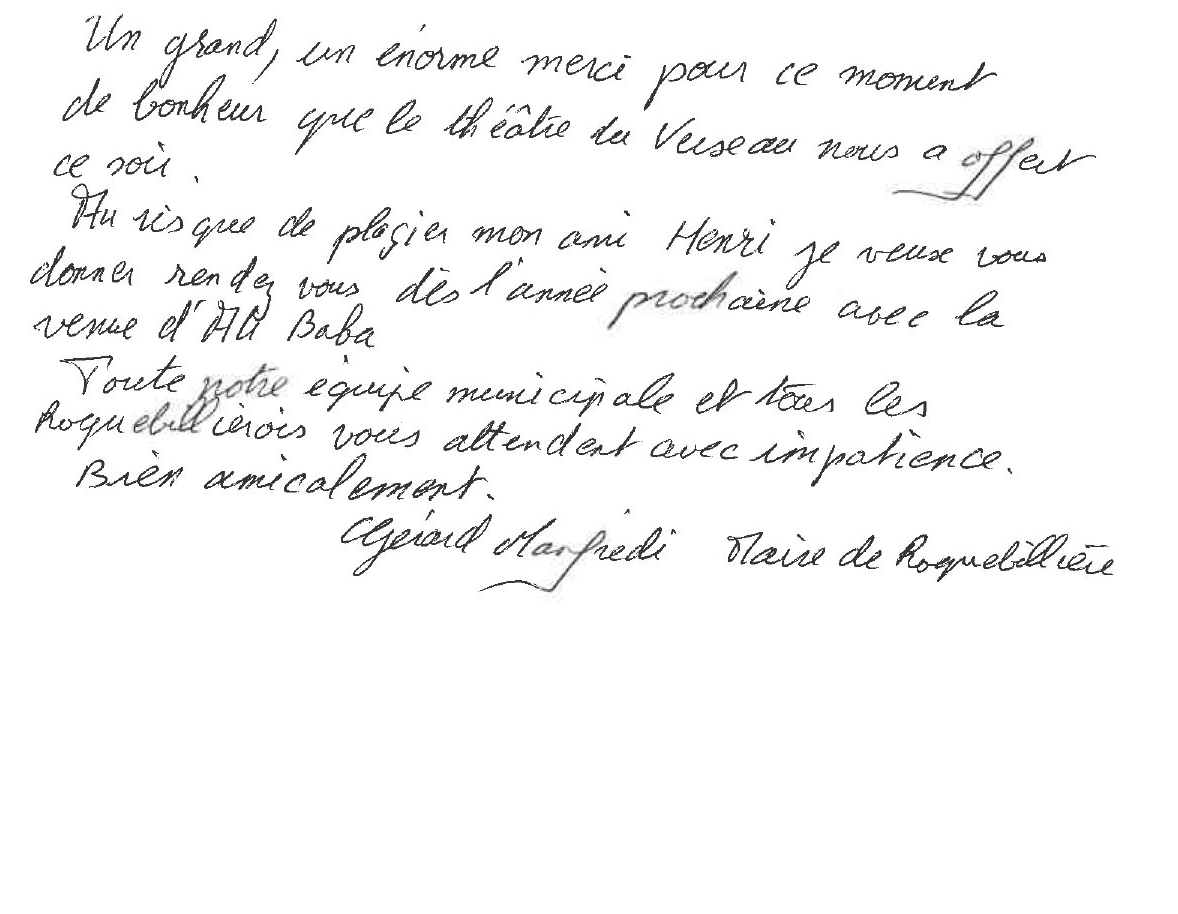 Un grand, un énorme merci pour ce moment
de bonheur que le théâtre du Verseau nous a offert
ce soir.
Au risque de plagier mon ami Henri je veux vous
donner rendez vous dès l'année prochaine avec la
venue d'Ali Baba
Toute notre équipe municipale et tous les
Roquebilliérois vous attendent avec impatience.
Bien amicalement.
Gérard Manfredi Maire de Roquebillière